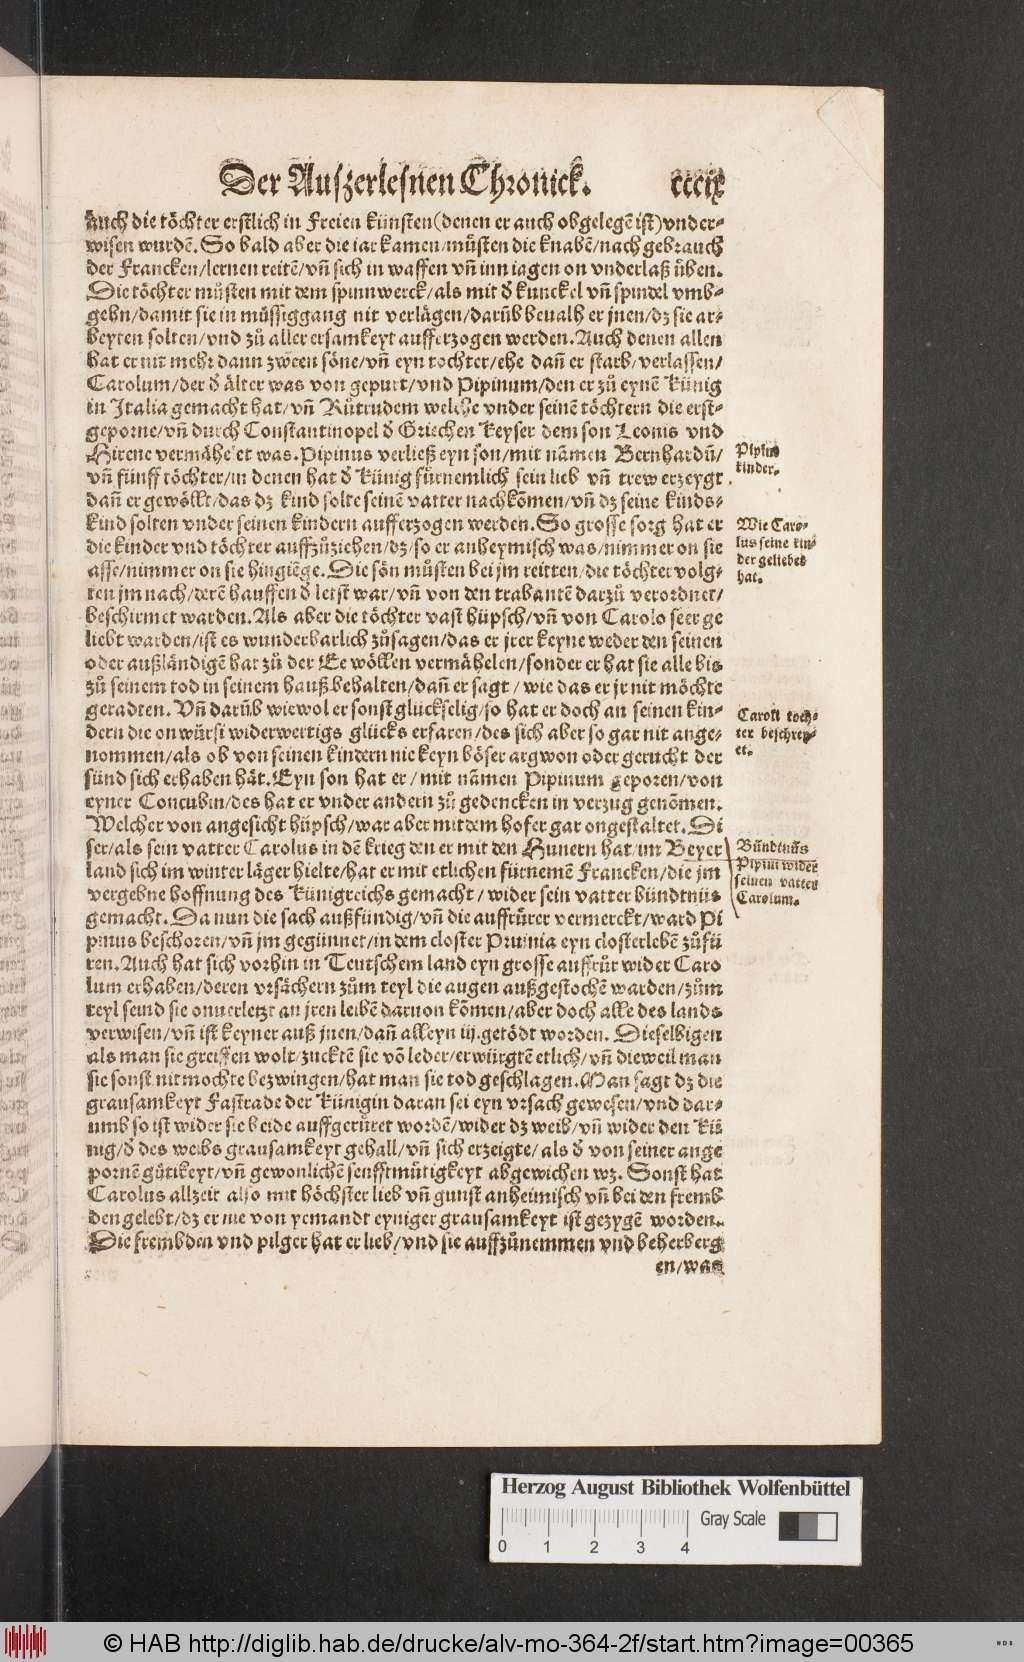 Der Auszerlesnen Chronick. cccix
auch die töchter erstlich in Freien künsten (denen er auch obgelegē ist) vnder-
wisen wurdē. So bald aber die iar kamen/müsten die knabē/nach gebrauch
der Francken/lernen reitē/vñ sich in waffen vñ inn iagen on vnderlaß üben.
Die töchter müsten mit dem spinnwerck/als mit d̄ kunckel vñ spindel vmb-
gehn/damit sie in müssiggang nit verlägen/darūb beualh er jnen/dz sie ar-
beyten solten/vnd zů aller ersamkeyt aufferzogen werden. Auch denen allen
hat er nit mehr dann zween söne/vñ eyn tochter/ehe dañ er starb/verlassen/
Carolum/der d̄ älter was von gepurt/vnd Pipinum/den er zů eynē Künig
in Italia gemacht hat/vñ Růtrudem welche vnder seinē töchtern die erst-
geporne/vñ durch Constantinopel d̄ Griechen Keyser dem son Leonis vnd
Hirene vermähelet was. Pipinus verließ eyn son/mit nāmen Bernhardū/
vñ fünff töchter/in denen hat d̄ Künig fürnemlich sein lieb vñ trew erzeygt
dañ er gewöllt/das dz kind solte seinē vatter nachkōmen/vñ dz seine kinds-
kind solten vnder seinen kindern aufferzogen werden. So grosse sorg hat er
die kinder vnd töchter auffzůziehen/dz/so er anheymisch was/nimmer on sie
asse/nimmer on sie hingienge. Die sön můsten bei jm reitten/die töchter volg-
ten jm nach/derē hauffen d̄ letst war/vñ von den trabantē darzů verordnet/
beschirmet warden. Als aber die töchter vast hüpsch/vñ von Carolo seer ge
liebt warden/ist es wunderbarlich zůsagen/das er jrer keyne weder den seinen
oder außländigē hat zů der Ee wöllen vermähelen/sonder er hat sie alle bis
zů seinem tod in seinem hauß behalten/dañ er sagt/wie das er jr nit möchte
geradten. Vñ darūb wiewol er sonst glückselig/so hat er doch an seinen kin-
dern die onwürst widerwertigs glücks erfaren/des sich aber so gar nit ange-
nommen/als ob von seinen kindern nie keyn böser argwon oder gerucht der
sünd sich erhaben hät. Eyn son hat er/mit nāmen Pipinum geporen/von
eyner Concubin/des hat er vnder andern zů gedencken in verzug genōmen.
Welcher von angesicht hüpsch/war aber mit dem hofer gar ongestaltet. Di
ser/als sein vatter Carolus in dē krieg den er mit den Hunern hat/im Beyer
land sich im winterläger hielte/hat er mit etlichen fürnemē Francken/die jm
vergebne hoffnung des Künigreichs gemacht/wider sein vatter bündtnüs
gemacht. Da nun die sach außfündig/vñ die auffrürer vermerckt/ward Pi
pinus beschoren/vñ jm gegünnet/in dem closter Pruinia eyn closterlebē zůfü
ren. Auch hat sich vorhin in Teutschem land eyn grosse auffrůr wider Caro
lum erhaben/deren vrsächern zům teyl die augen außgestochē warden/zům
teyl seind sie onuerletzt an jren leibē daruon kōmen/aber doch alle des lands
verwisen/vñ ist keyner auß jnen/dañ alleyn iij. getödt worden. Dieselbigen
als man sie greiffen wolt/zucktē sie vō leder/erwürgtē etlich/vñ dieweil man
sie sonst nit mochte bezwingen/hat man sie tod geschlagen. Man sagt dz die
grausamkeyt Fastrade der Künigin daran sei eyn vrsach gewesen/vnd dar-
umb so ist wider sie beide auffgerüret wordē/wider dz weib/vñ wider den Kü
nig/d̄ des weibs grausamkeyt gehall/vñ sich erzeigte/als d̄ von seiner ange
pornē gütikeyt/vñ gewonlichē senfftmütigkeyt abgewichen wz. Sonst hat
Carolus allzeit also mit höchster lieb vñ gunst anheimisch vñ bei den fremb
den gelebt/dz er nie von yemandt eyniger grausamkeyt ist gezygē worden.
Die frembden vnd pilger hat er lieb/vnd sie auffzůnemmen vnd beherberg
en/was
Pipins
kinder.
Wie Caro-
lus seine kin-
der geliebet
hat.
Caroli töch-
ter beschrey-
et.
Bündtnüs
Pipini widē
seinen vatter
Carolum.
Herzog August Bibliothek Wolfenbüttel
Gray Scale
0 1 2 3 4
© HAB http://diglib.hab.de/drucke/alv-mo-364-2f/start.htm?image=00365